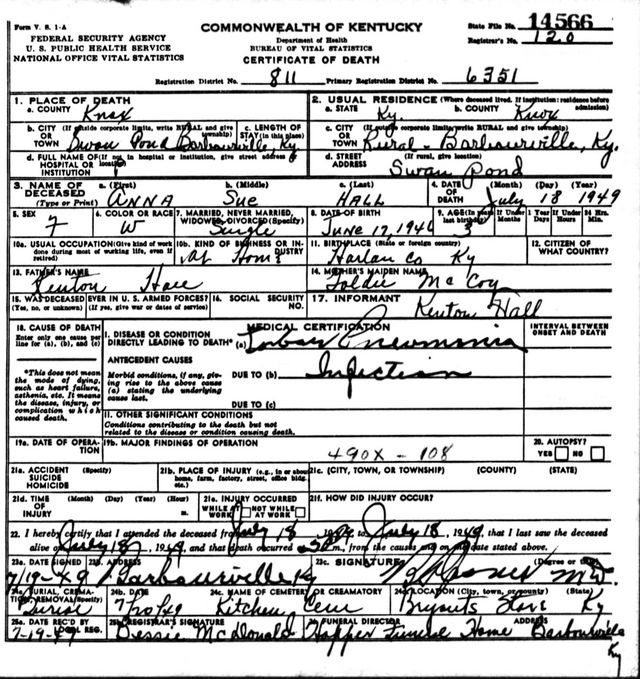 Form V. S. 1-A
FEDERAL SECURITY AGENCY
U. S. PUBLIC HEALTH SERVICE
NATIONAL OFFICE VITAL STATISTICS
COMMONWEALTH OF KENTUCKY
Department of Health
BUREAU OF VITAL STATISTICS
CERTIFICATE OF DEATH
State File No. 14566
Registrar's No. 120
Registration District No. 811 Primary Registration District No. 6351
1. PLACE OF DEATH
a. COUNTY Knox
2. USUAL RESIDENCE (Where deceased lived. If institution: residence before admission)
a. STATE Ky. b. COUNTY Knox
b. CITY (If outside corporate limits, write RURAL and give township) OR TOWN Swan Pond Barbourville, Ky
c. LENGTH OF STAY (in this place)
c. CITY (If outside corporate limits, write RURAL and give township) OR TOWN Rural - Barbourville, Ky.
d. FULL NAME OF (If not in hospital or institution, give street address or location) HOSPITAL OR INSTITUTION
d. STREET ADDRESS (If rural, give location) Swan Pond
3. NAME OF DECEASED (Type or Print) a. (First) ANNA b. (Middle) Sue c. (Last) HALL
4. DATE OF DEATH (Month) (Day) (Year) July 18 1949
5. SEX F
6. COLOR OR RACE W
7. MARRIED, NEVER MARRIED, WIDOWED, DIVORCED (Specify) Single
8. DATE OF BIRTH June 17, 1946
9. AGE (In years last birthday) 3 If Under 1 Year Months Days If Under 24 Hrs. Hours Min.
10a. USUAL OCCUPATION (Give kind of work done during most of working life, even if retired)
10b. KIND OF BUSINESS OR INDUSTRY At Home
11. BIRTHPLACE (State or foreign country) Harlan Co Ky
12. CITIZEN OF WHAT COUNTRY?
13. FATHER'S NAME Kenton Hall
14. MOTHER'S MAIDEN NAME Goldie McCoy
15. WAS DECEASED EVER IN U. S. ARMED FORCES? (Yes, no, or unknown) (If yes, give war or dates of service)
16. SOCIAL SECURITY NO.
17. INFORMANT Kenton Hall
18. CAUSE OF DEATH
Enter only one cause per line for (a), (b), and (c)
*This does not mean the mode of dying, such as heart failure, asthenia, etc. It means the disease, injury, or complication which caused death.
MEDICAL CERTIFICATION
INTERVAL BETWEEN ONSET AND DEATH
I. DISEASE OR CONDITION DIRECTLY LEADING TO DEATH* (a) Lobar Pneumonia
ANTECEDENT CAUSES
Morbid conditions, if any, giving rise to the above cause (a) stating the underlying cause last.
DUE TO (b) Infection
DUE TO (c)
II. OTHER SIGNIFICANT CONDITIONS
Conditions contributing to the death but not related to the disease or condition causing death.
19a. DATE OF OPERATION
19b. MAJOR FINDINGS OF OPERATION
490X - 108
20. AUTOPSY? YES NO
21a. ACCIDENT SUICIDE HOMICIDE (Specify)
21b. PLACE OF INJURY (e.g., in or about home, farm, factory, street, office bldg. etc.)
21c. (CITY, TOWN, OR TOWNSHIP) (COUNTY) (STATE)
21d. TIME OF INJURY (Month) (Day) (Year) (Hour) m.
21e. INJURY OCCURRED WHILE AT WORK NOT WHILE AT WORK
21f. HOW DID INJURY OCCUR?
22. I hereby certify that I attended the deceased from July 18, 1949, to July 18, 1949, that I last saw the deceased
alive on July 18, 1949, and that death occurred m., from the causes and on the date stated above.
23a. DATE SIGNED 7/19-49
23b. ADDRESS Barbourville Ky
23c. SIGNATURE (Degree or title) M.D.
24a. BURIAL, CREMATION, REMOVAL (Specify) Burial
24b. DATE 7/20/49
24c. NAME OF CEMETERY OR CREAMATORY Kitchen Cem
24d. LOCATION (City, town, or county) (State) Bryants Store Ky
25a. DATE REC'D BY LOCAL REG. 7-19-49
25b. REGISTRAR'S SIGNATURE Bessie McDonald
26. FUNERAL DIRECTOR ADDRESS Hopper Funeral Home Barbourville Ky